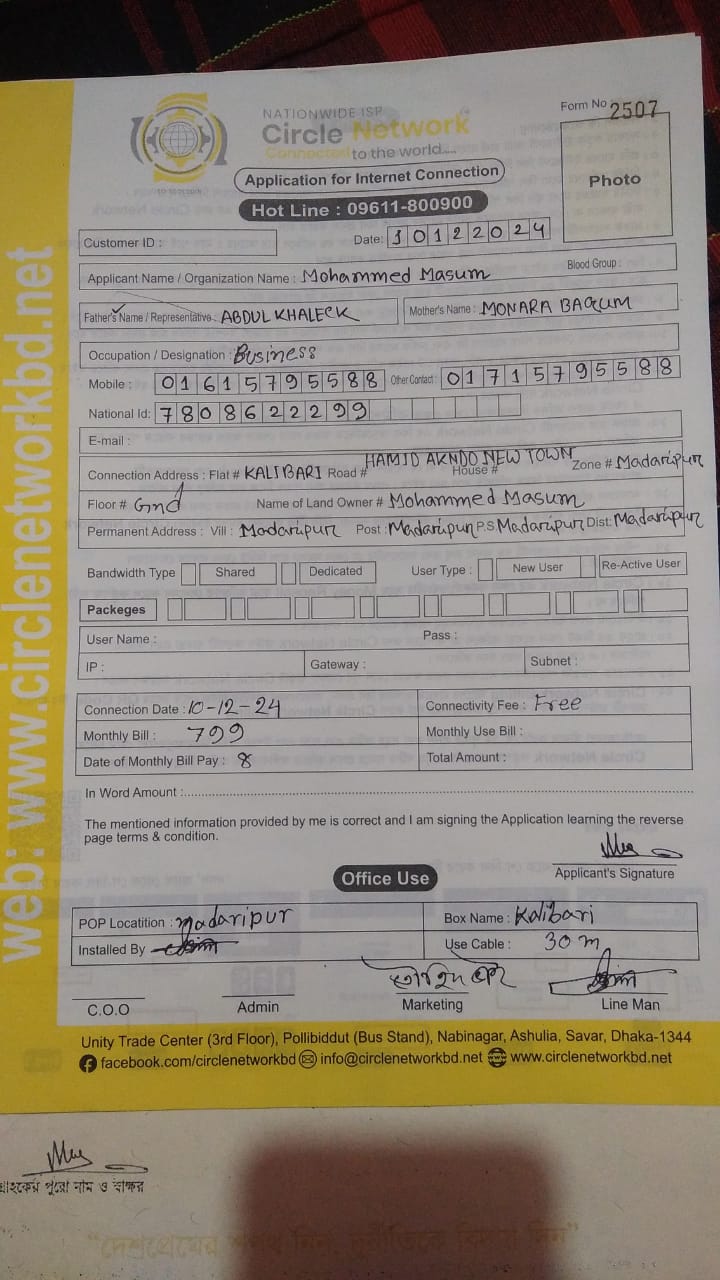 Form No 2507
NATIONWIDE ISP
Circle Network
Connected to the world....
Photo
Application for Internet Connection
Hot Line : 09611-800900
Customer ID :
Date: 10122024
Applicant Name / Organization Name : Mohammed Masum Blood Group :
Father's Name / Representative : ABDUL KHALECK Mother's Name : MONARA BAGUM
Occupation / Designation : Business
Mobile : 01615795588 Other Contact : 01715795588
National Id: 7808622299
E-mail :
Connection Address : Flat # KALIBARI Road # HAMID AKNDO NEW TOWN House # Zone # Madaripur
Floor # Gnd Name of Land Owner # Mohammed Masum
Permanent Address : Vill : Madaripur Post : Madaripur P.S Madaripur Dist: Madaripur
Bandwidth Type Shared Dedicated User Type : New User Re-Active User
Packeges
User Name : Pass :
IP : Gateway : Subnet :
Connection Date : 10-12-24 Connectivity Fee : Free
Monthly Bill : 799 Monthly Use Bill :
Date of Monthly Bill Pay : 8 Total Amount :
In Word Amount :
The mentioned information provided by me is correct and I am signing the Application learning the reverse
page terms & condition.
Applicant's Signature
Office Use
POP Locatition : Madaripur Box Name : Kalibari
Installed By Use Cable : 30 m
C.O.O Admin Marketing Line Man
Unity Trade Center (3rd Floor), Pollibiddut (Bus Stand), Nabinagar, Ashulia, Savar, Dhaka-1344
facebook.com/circlenetworkbd info@circlenetworkbd.net www.circlenetworkbd.net
web: www.circlenetworkbd.net
গ্রাহকের পুরো নাম ও স্বাক্ষর
"দেশপ্রেমের শপথ নিন, দুর্নীতিকে বিদায় দিন"